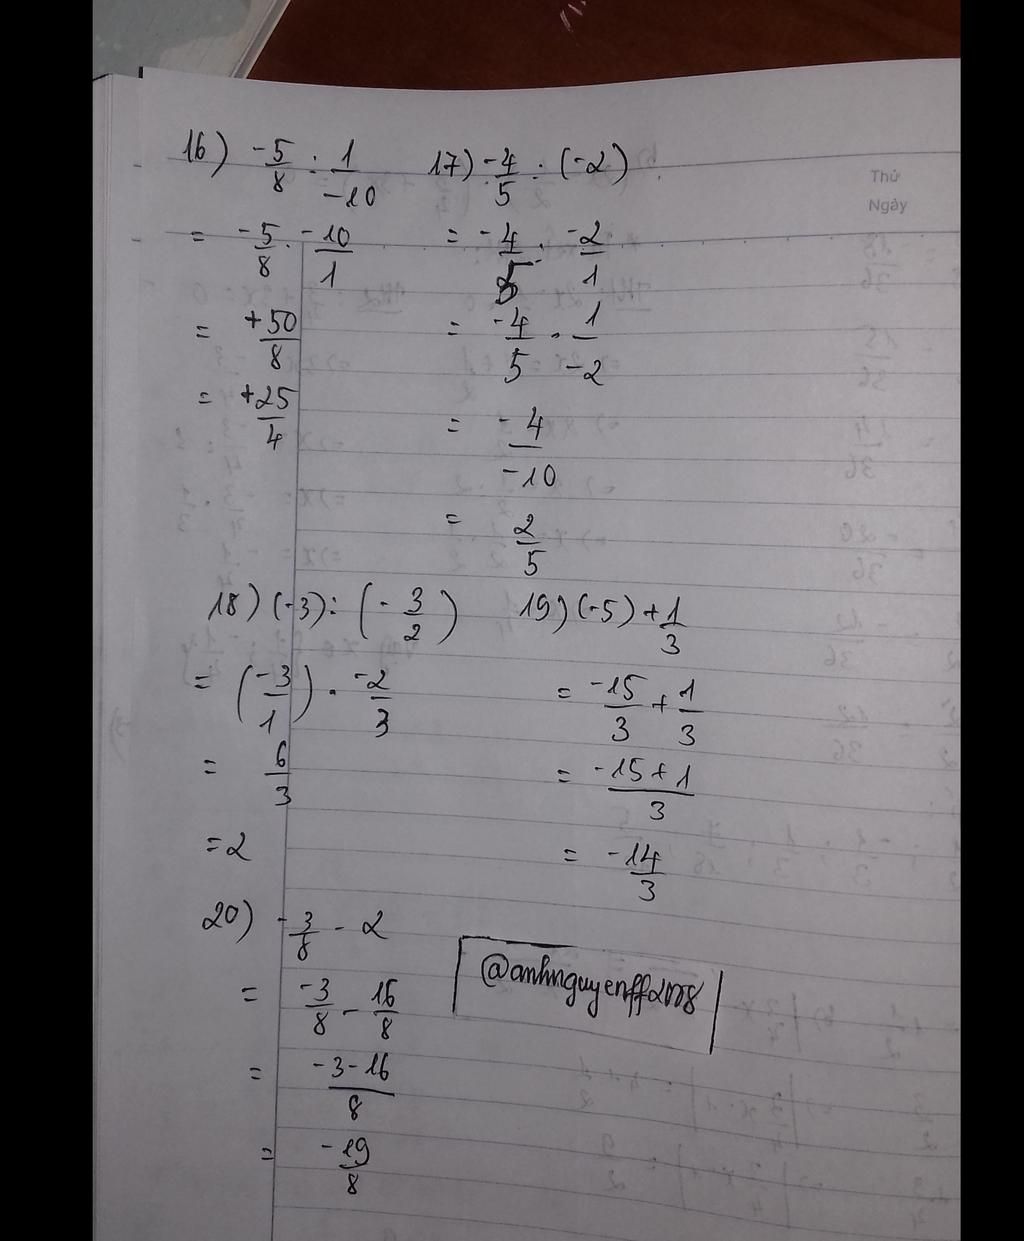 16) -5/8 : 1/-10
= -5/8 . -10/1
= +50/8
= +25/4
17) -4/5 : (-2)
= -4/5 : -2/1
= -4/5 . 1/-2
= -4/-10
= 2/5
Thứ
Ngày
18) (-3) : (-3/2)
= (-3/1) . -2/3
= 6/3
= 2
19) (-5) + 1/3
= -15/3 + 1/3
= -15+1/3
= -14/3
20) -3/8 - 2
= -3/8 - 16/8
= -3-16/8
= -19/8
@anhnguyenff2008